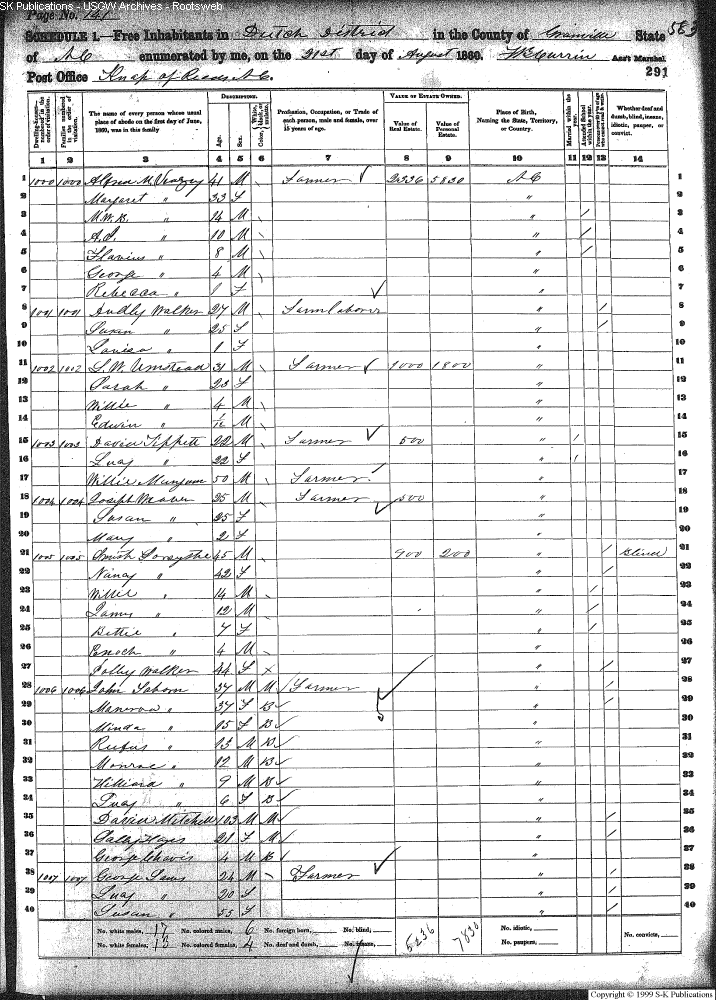 SK Publications - USGW Archives - Rootsweb
Page No. 141
SCHEDULE 1.—Free Inhabitants in Dutch District in the County of Granville State 583
of N C enumerated by me, on the 21st day of August 1860. Ass't Marshal.
291
Post Office Knap of Reeds N C.
Dwelling-houses numbered in the order of visitation.
Families numbered in the order of visitation.
The name of every person whose usual place of abode on the first day of June, 1860, was in this family
DESCRIPTION.
Age.
Sex.
Color, White, black, or mulatto.
Profession, Occupation, or Trade of each person, male and female, over 15 years of age.
VALUE OF ESTATE OWNED.
Value of Real Estate.
Value of Personal Estate.
Place of Birth, Naming the State, Territory, or Country.
Married within the year.
Attended School within the year.
Whether deaf and dumb, blind, insane, idiotic, pauper, or convict.
1 2 3 4 5 6 7 8 9 10 11 12 13 14
1 1000 1000 41 M Farmer 2336 5830 N C 1
2 Margaret " 33 F " 2
3 M.W.B. " 14 M " 3
4 " 10 M " 4
5 Flavius " 8 M " 5
6 George " 4 M " 6
7 Rebecca " 1 F " 7
8 1001 1001 Walker 27 M Farm laborer " 8
9 Susan " 25 F " 9
10 Louisa " 1 F " 10
11 1002 1002 Umstead 31 M Farmer 1000 1800 " 11
12 Sarah " 23 F " 12
13 Willie " 4 M " 13
14 Edwin " M " 14
15 1003 1003 David Tippett 22 M Farmer 500 " 15
16 Lucy " 22 F " 16
17 Willie Mangum 50 M Farmer " 17
18 1004 1004 Joseph Weaver 25 M Farmer 500 " 18
19 Susan " 25 F " 19
20 Mary " 2 F " 20
21 1005 1005 Forsythe 45 M 900 200 " Blind 21
22 Nancy " 42 F " 22
23 Willie " 14 M " 23
24 James " 12 M " 24
25 Bettie " 7 F " 25
26 Enoch " 4 M " 26
27 Polley Walker 44 F " 27
28 1006 1006 John 37 M M Farmer " 28
29 Manerva " 37 F B " 29
30 Minda " 15 F B " 30
31 Rufus " 13 M B " 31
32 Monroe " 12 M B " 32
33 Hilliard " 9 M B " 33
34 Lucy " 6 F B " 34
35 David Mitchell 103 M M " 35
36 21 F M " 36
37 George Chavis 4 M B " 37
38 1007 1007 George 24 M Farmer " 38
39 Lucy " 20 F " 39
40 Susan " 55 F " 40
No. white males, 17 No. colored males, 6 No. foreign born, No. blind, 5236 7830 No. idiotic, No. convicts,
No. white females, 13 No. colored females, 4 No. deaf and dumb, No. insane, No. paupers,
Copyright © 1999 S-K Publications